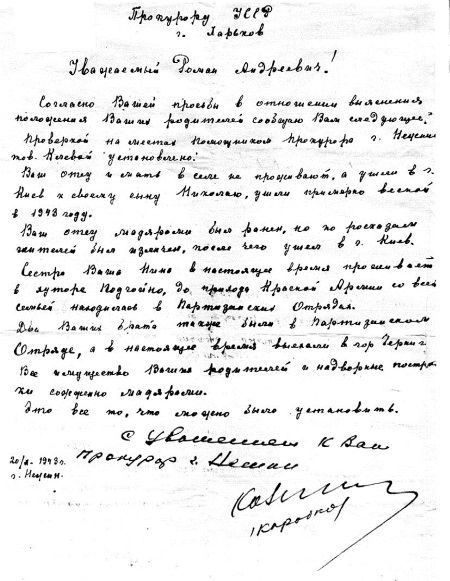 Прокурору УССР
г. Харьков
Уважаемый Роман Андреевич!
Согласно Вашей просьбы в отношении выяснения
положения Ваших родителей сообщаю Вам следующее:
Проверкой на местах Помощником Прокурора г. Нежина
тов. Клевой установлено:
Ваш отец и мать в селе не проживают, а ушли в г.
Киев к своему сыну Николаю, ушли примерно весной
в 1943 году.
Ваш отец мадярами был ранен, но по росказам
жителей был излечен, после чего ушел в г. Киев.
Сестра Ваша Нина в настоящее время проживает
в хуторе Подгайно, до прихода Красной Армии со всей
семьей находилась в Партизанских Отрядах.
Два Ваших брата также были в Партизанском
Отряде, а в настоящее время выехали в гор Черниг
Все имущество Ваших родителей и надворные постро
ки сожжено мадярами.
Это все то, что можно было установить.
С уважением к Вам
Прокурор г. Нежин
20/X-1943 г.
г. Нежин.
(Коробко)